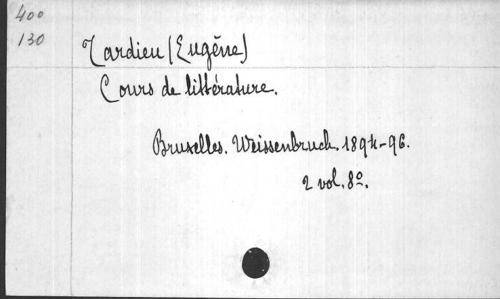 400
130
Tardieu (Eugène)
Cours de littérature.
Bruxelles. Weissenbruch. 1894-96.
2 vol. 8º.